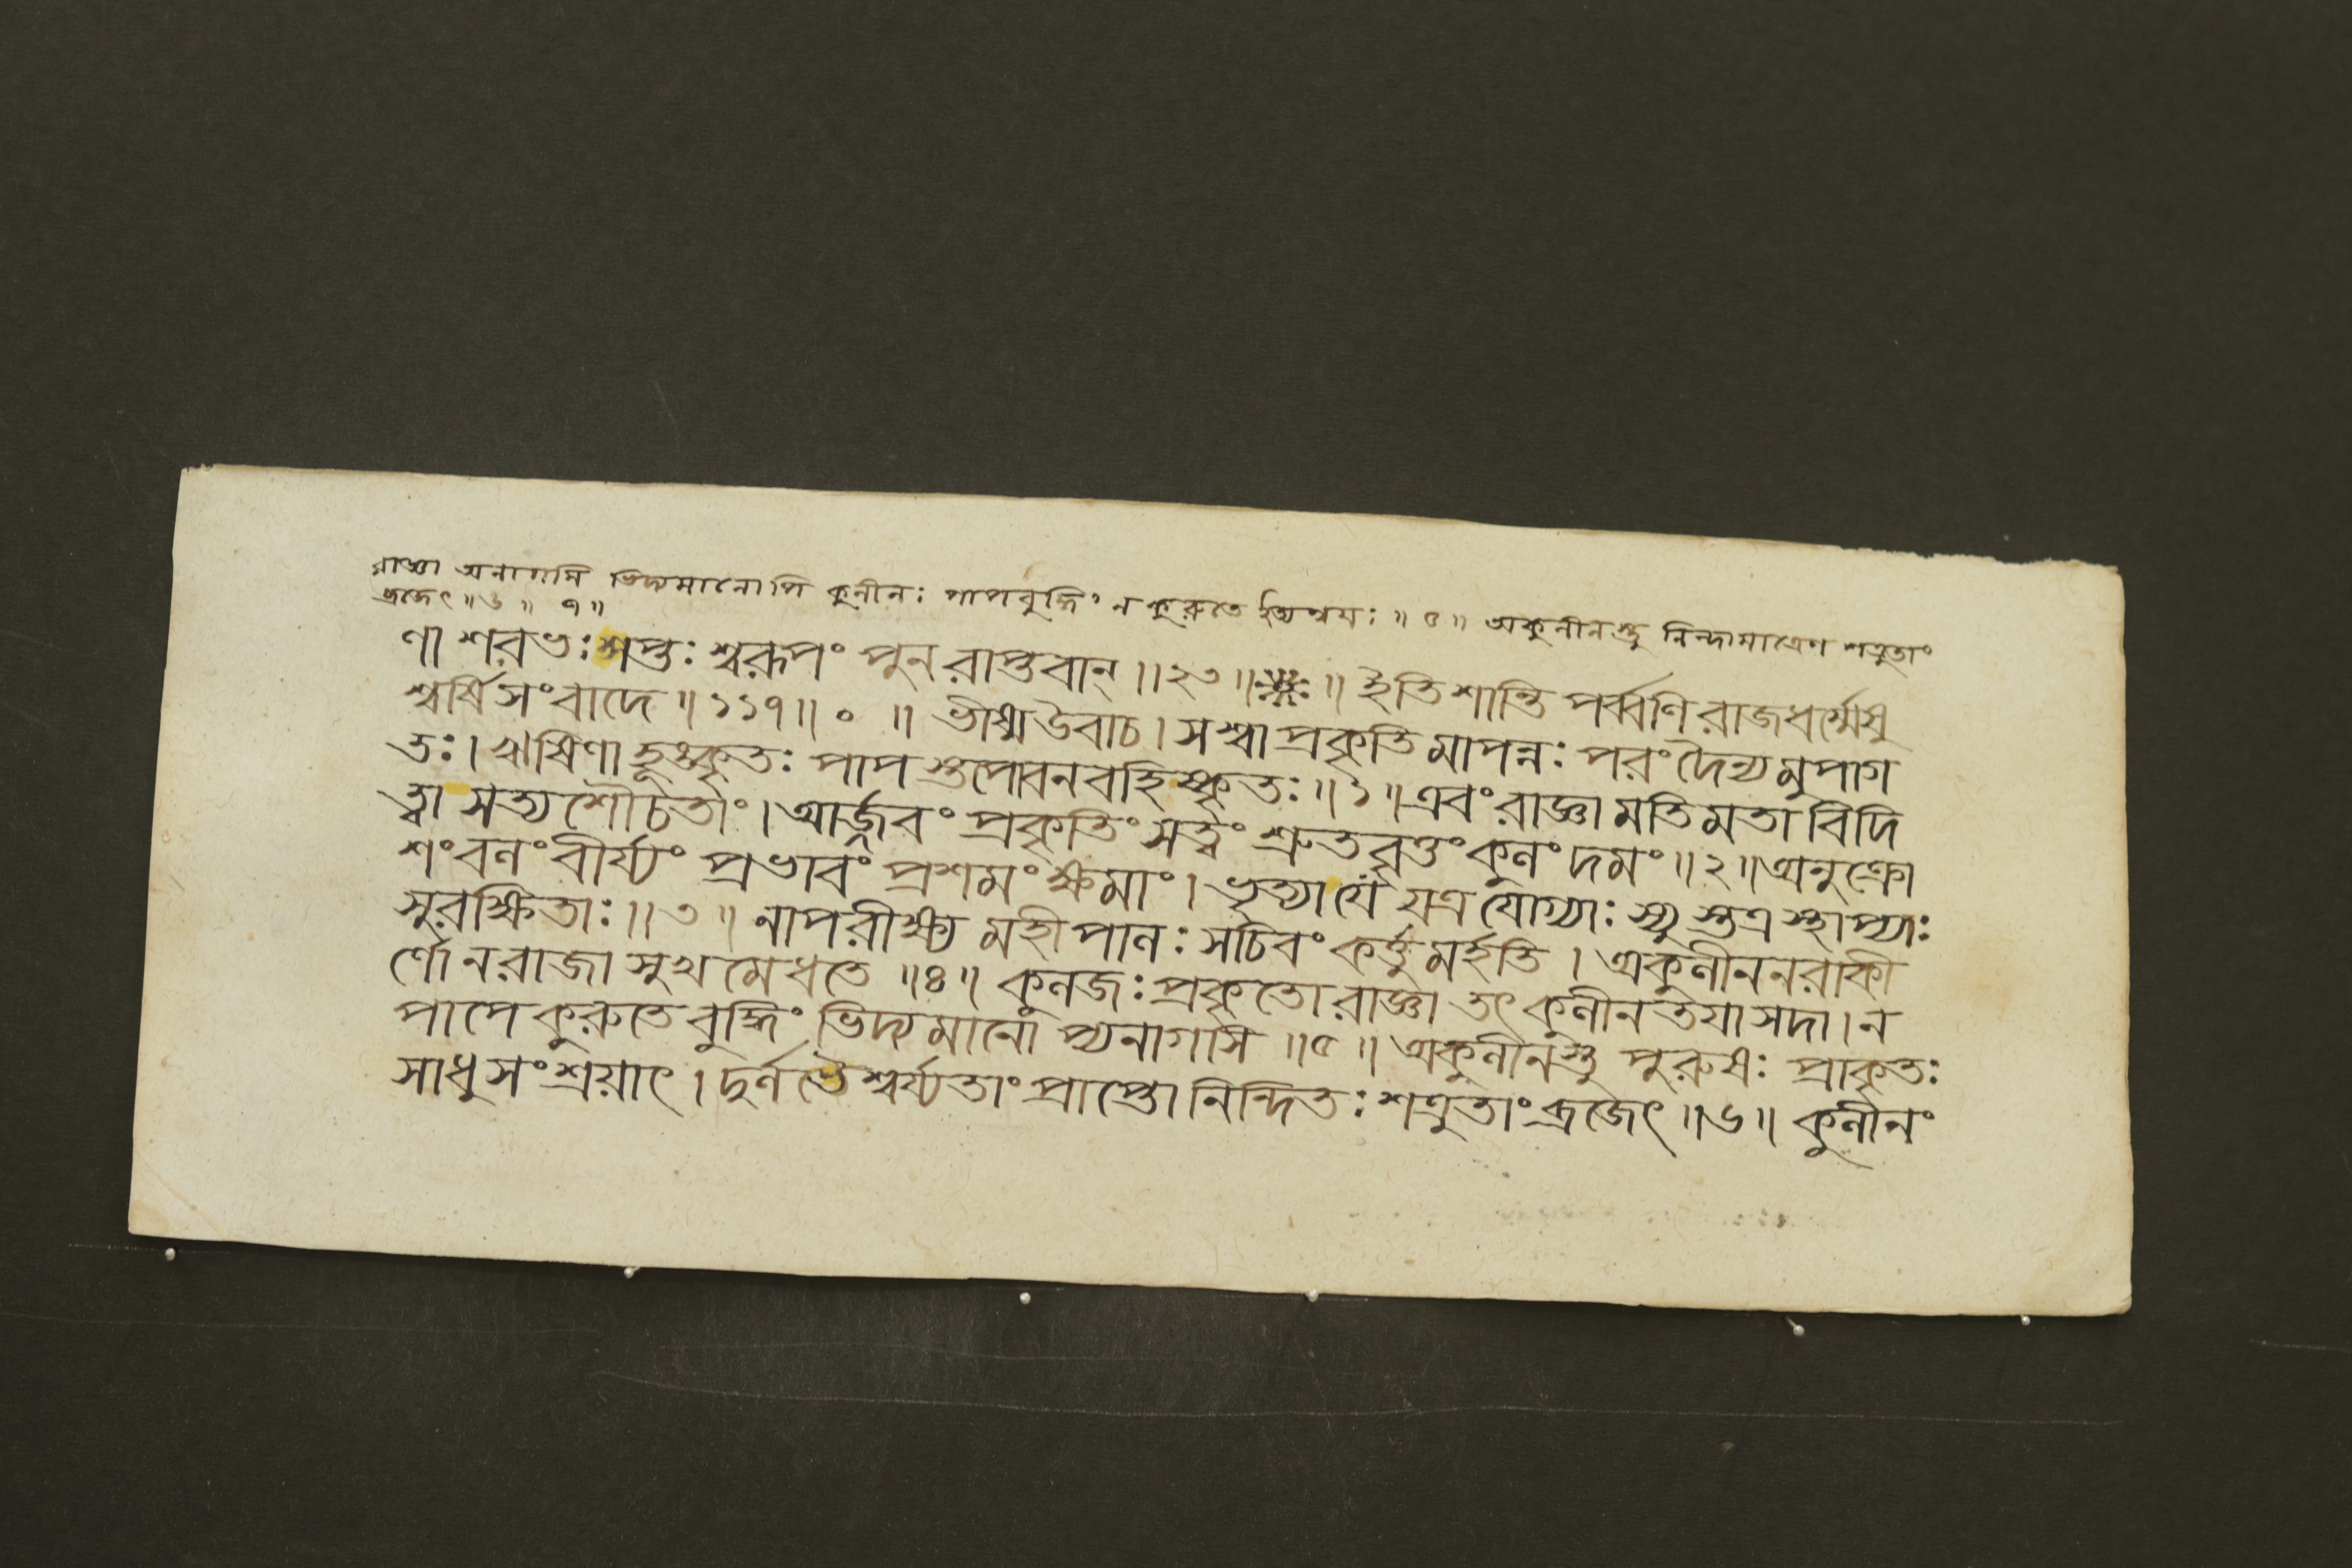 রাজ্ঞা অনাগসি ভিদ্যমানোপি কুলীনঃ পাপবুদ্ধিং ন কুরুতে ইত্যন্বয়ঃ ॥ ৫ ॥ অকুলীনস্তু নিন্দামাত্রেণ শত্রুতাং
ব্রজেৎ ॥ ৬ ॥ ৭ ॥
ণা শরভঃ শপ্তঃ শ্বরূপং পুনরাপ্তবান্ ॥ ২৩ ॥ ॥ ইতি শান্তিপর্ব্বণি রাজধর্ম্মেষু
শ্বর্ষিসংবাদে ॥ ১১৭ ॥ ০ ॥ ভীষ্ম উবাচ । স শ্বা প্রকৃতিমাপন্নঃ পরং দৈন্যমুপাগ
তঃ । ঋষিণা হূঙ্কৃতঃ পাপস্তপোবনবহিষ্কৃতঃ ॥ ১ ॥ এবং রাজ্ঞা মতিমতা বিদি
ত্বা সত্যশৌচতাং । আর্জ্জবং প্রকৃতিং সত্ত্বং শ্রুতবৃত্তং কুলং দমং ॥ ২ ॥ অনুক্রো
শং বলং বীর্য্যং প্রভাবং প্রশমং ক্ষমাং । ভৃত্যা যে যত্র যোগ্যাঃ স্যুস্তত্র স্থাপ্যাঃ
সুরক্ষিতাঃ ॥ ৩ ॥ নাপরীক্ষ্য মহীপালঃ সচিবং কর্ত্তুমর্হতি । অকুলীননরাকী
র্ণো ন রাজা সুখমেধতে ॥ ৪ ॥ কুলজঃ প্রকৃতো রাজ্ঞা তৎকুলীনতয়া সদা । ন
পাপে কুরুতে বুদ্ধিং ভিদ্যমানোপ্যনাগসি ॥ ৫ ॥ অকুলীনস্তু পুরুষঃ প্রাকৃতঃ
সাধুসংশ্রয়াৎ । দুর্লভৈশ্বর্য্যতাং প্রাপ্তো নিন্দিতঃ শত্রুতাং ব্রজেৎ ॥ ৬ ॥ কুলীনং